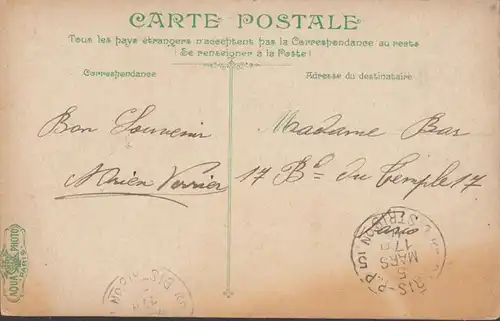 CARTE POSTALE
Tous les pays étrangers n'acceptent pas la Correspondance au recto
(Se renseigner à la Poste)
Correspondance
Adresse du destinataire
Bon Souvenir
Verrier
Madame Bar
17 Bd du Temple 17
Paris
AQUA PHOTO
PARIS
5
MARS
17